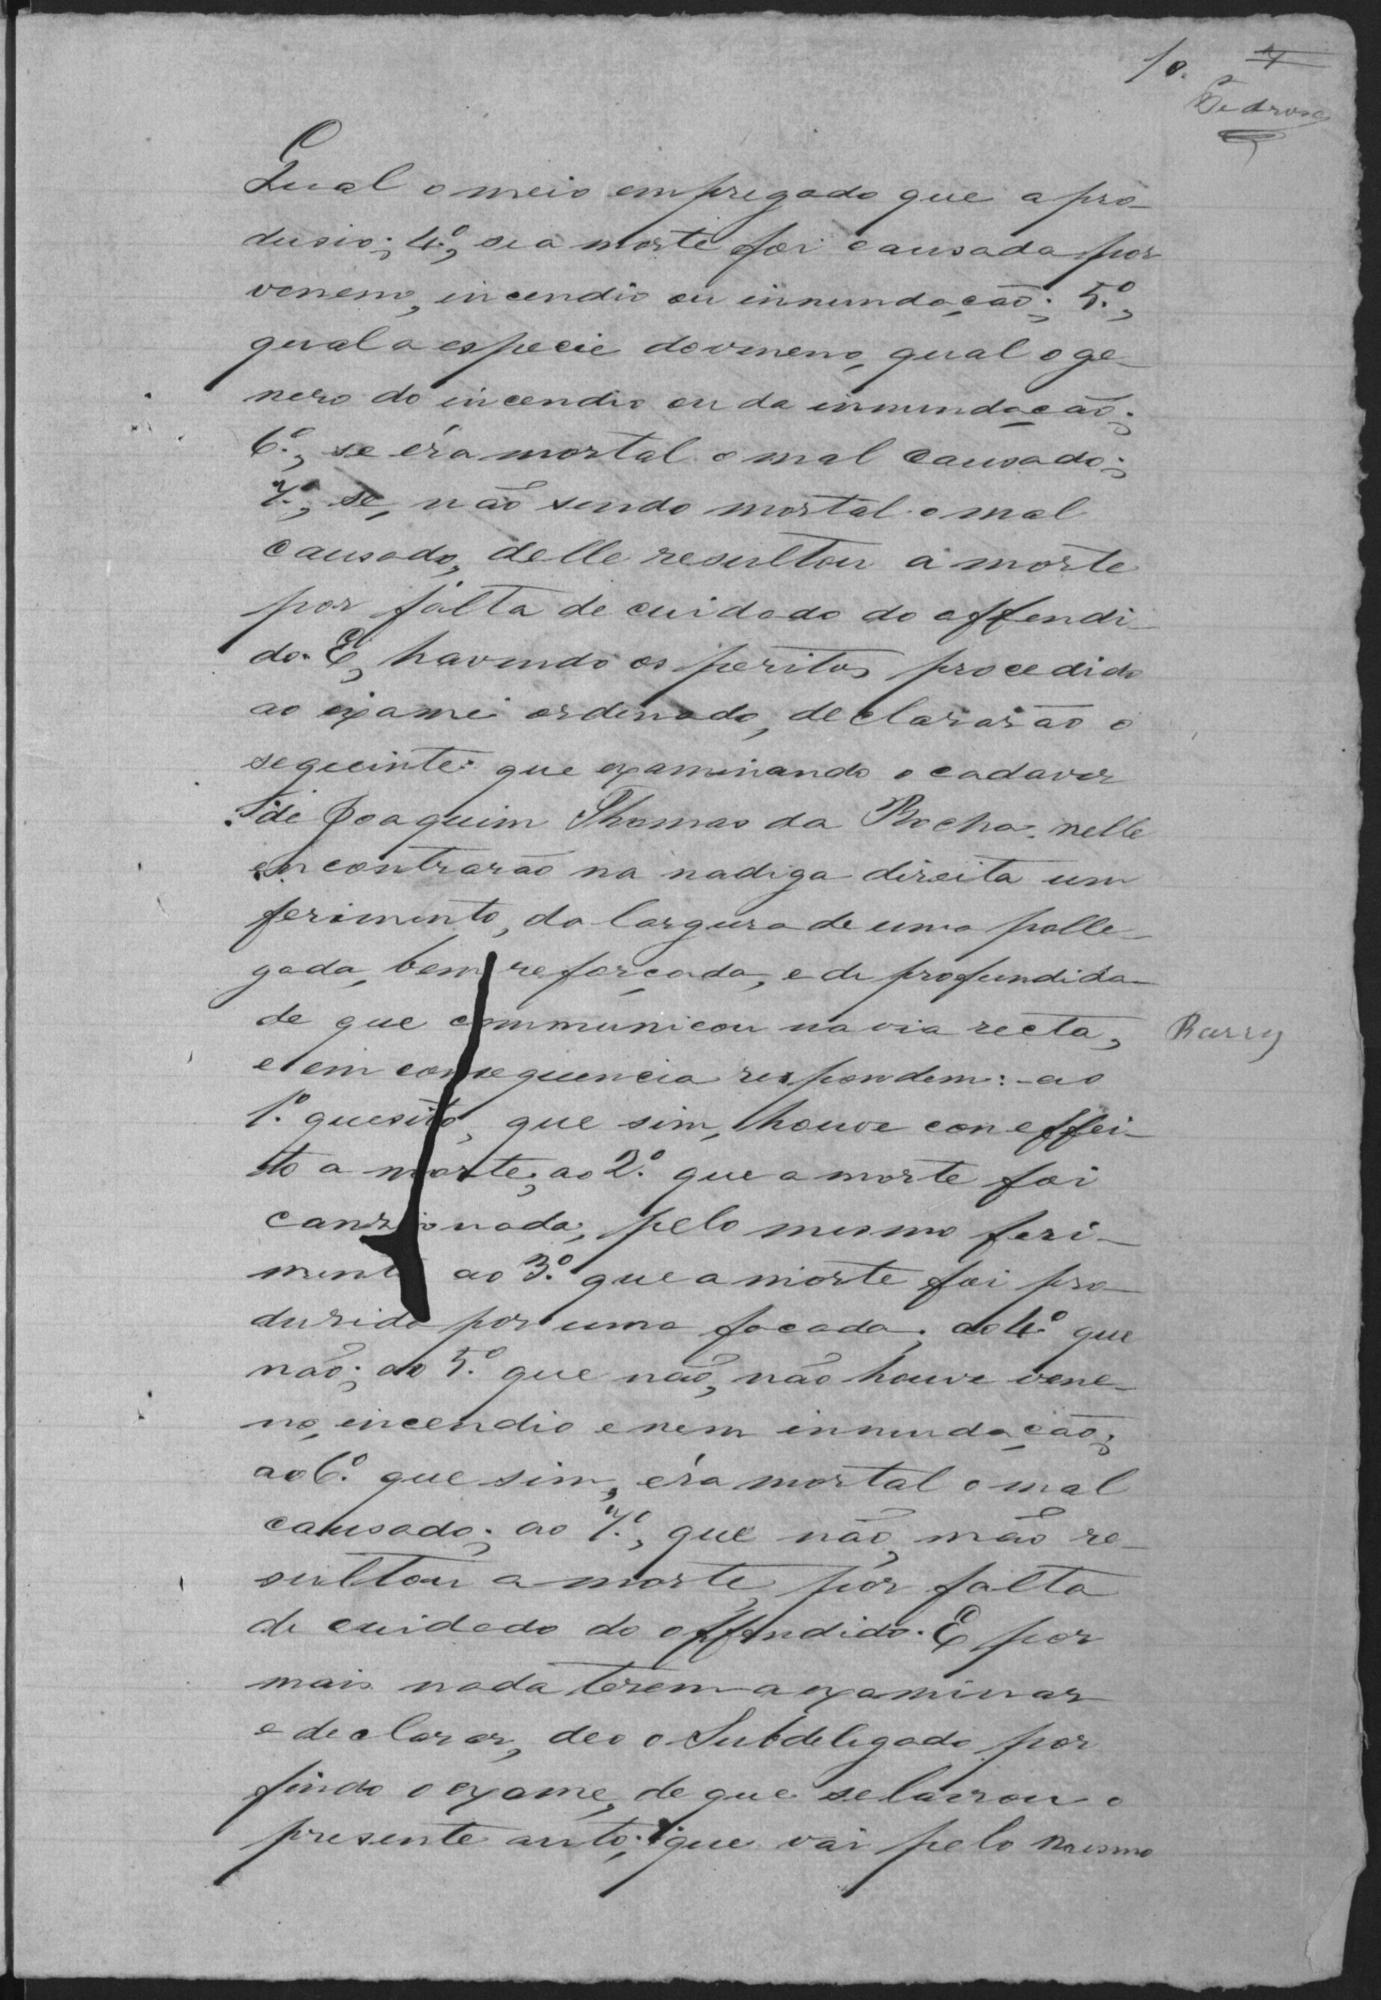 10.
Pedrosa
Qual o meio empregado que a pro-
dusio; 4º, se a morte foi causada por
veneno, incendio ou innundação; 5º,
qual a especie do veneno, qual o ge-
nero do incendio ou da innundação;
6º, se éra mortal o mal causado;
7º, se, não sendo mortal o mal
causado, delle resultou a morte
por falta de cuidado do offendi-
do. E, havendo os peritos procedido
ao exame ordenado, declararão o
seguinte: que examinando o cadaver
de Joaquim Thomas da Rocha nelle
encontrarão na nadiga direita um
ferimento, da largura de uma polle-
gada, bem reforçada, e de profundida-
de que communicou na via recta,
e em consequencia respondem: - ao
1º quesito, que sim, houve con effei-
to a morte; ao 2º que a morte foi
canzionada, pelo mesmo feri-
mento ao 3º que a morte foi pro-
dusida por uma facada; ao 4º que
não; ao 5º que não, não houve vene-
no, incendio e nem innundação;
ao 6º que sim, éra mortal o mal
causado; ao 7º, que não, não re-
sultou a morte por falta
de cuidado do offendido. E por
mais nada terem a examinar
e declarar, deo o Subdelegado por
findo o exame, de que se lavrou o
presente auto; que vai pelo mesmo